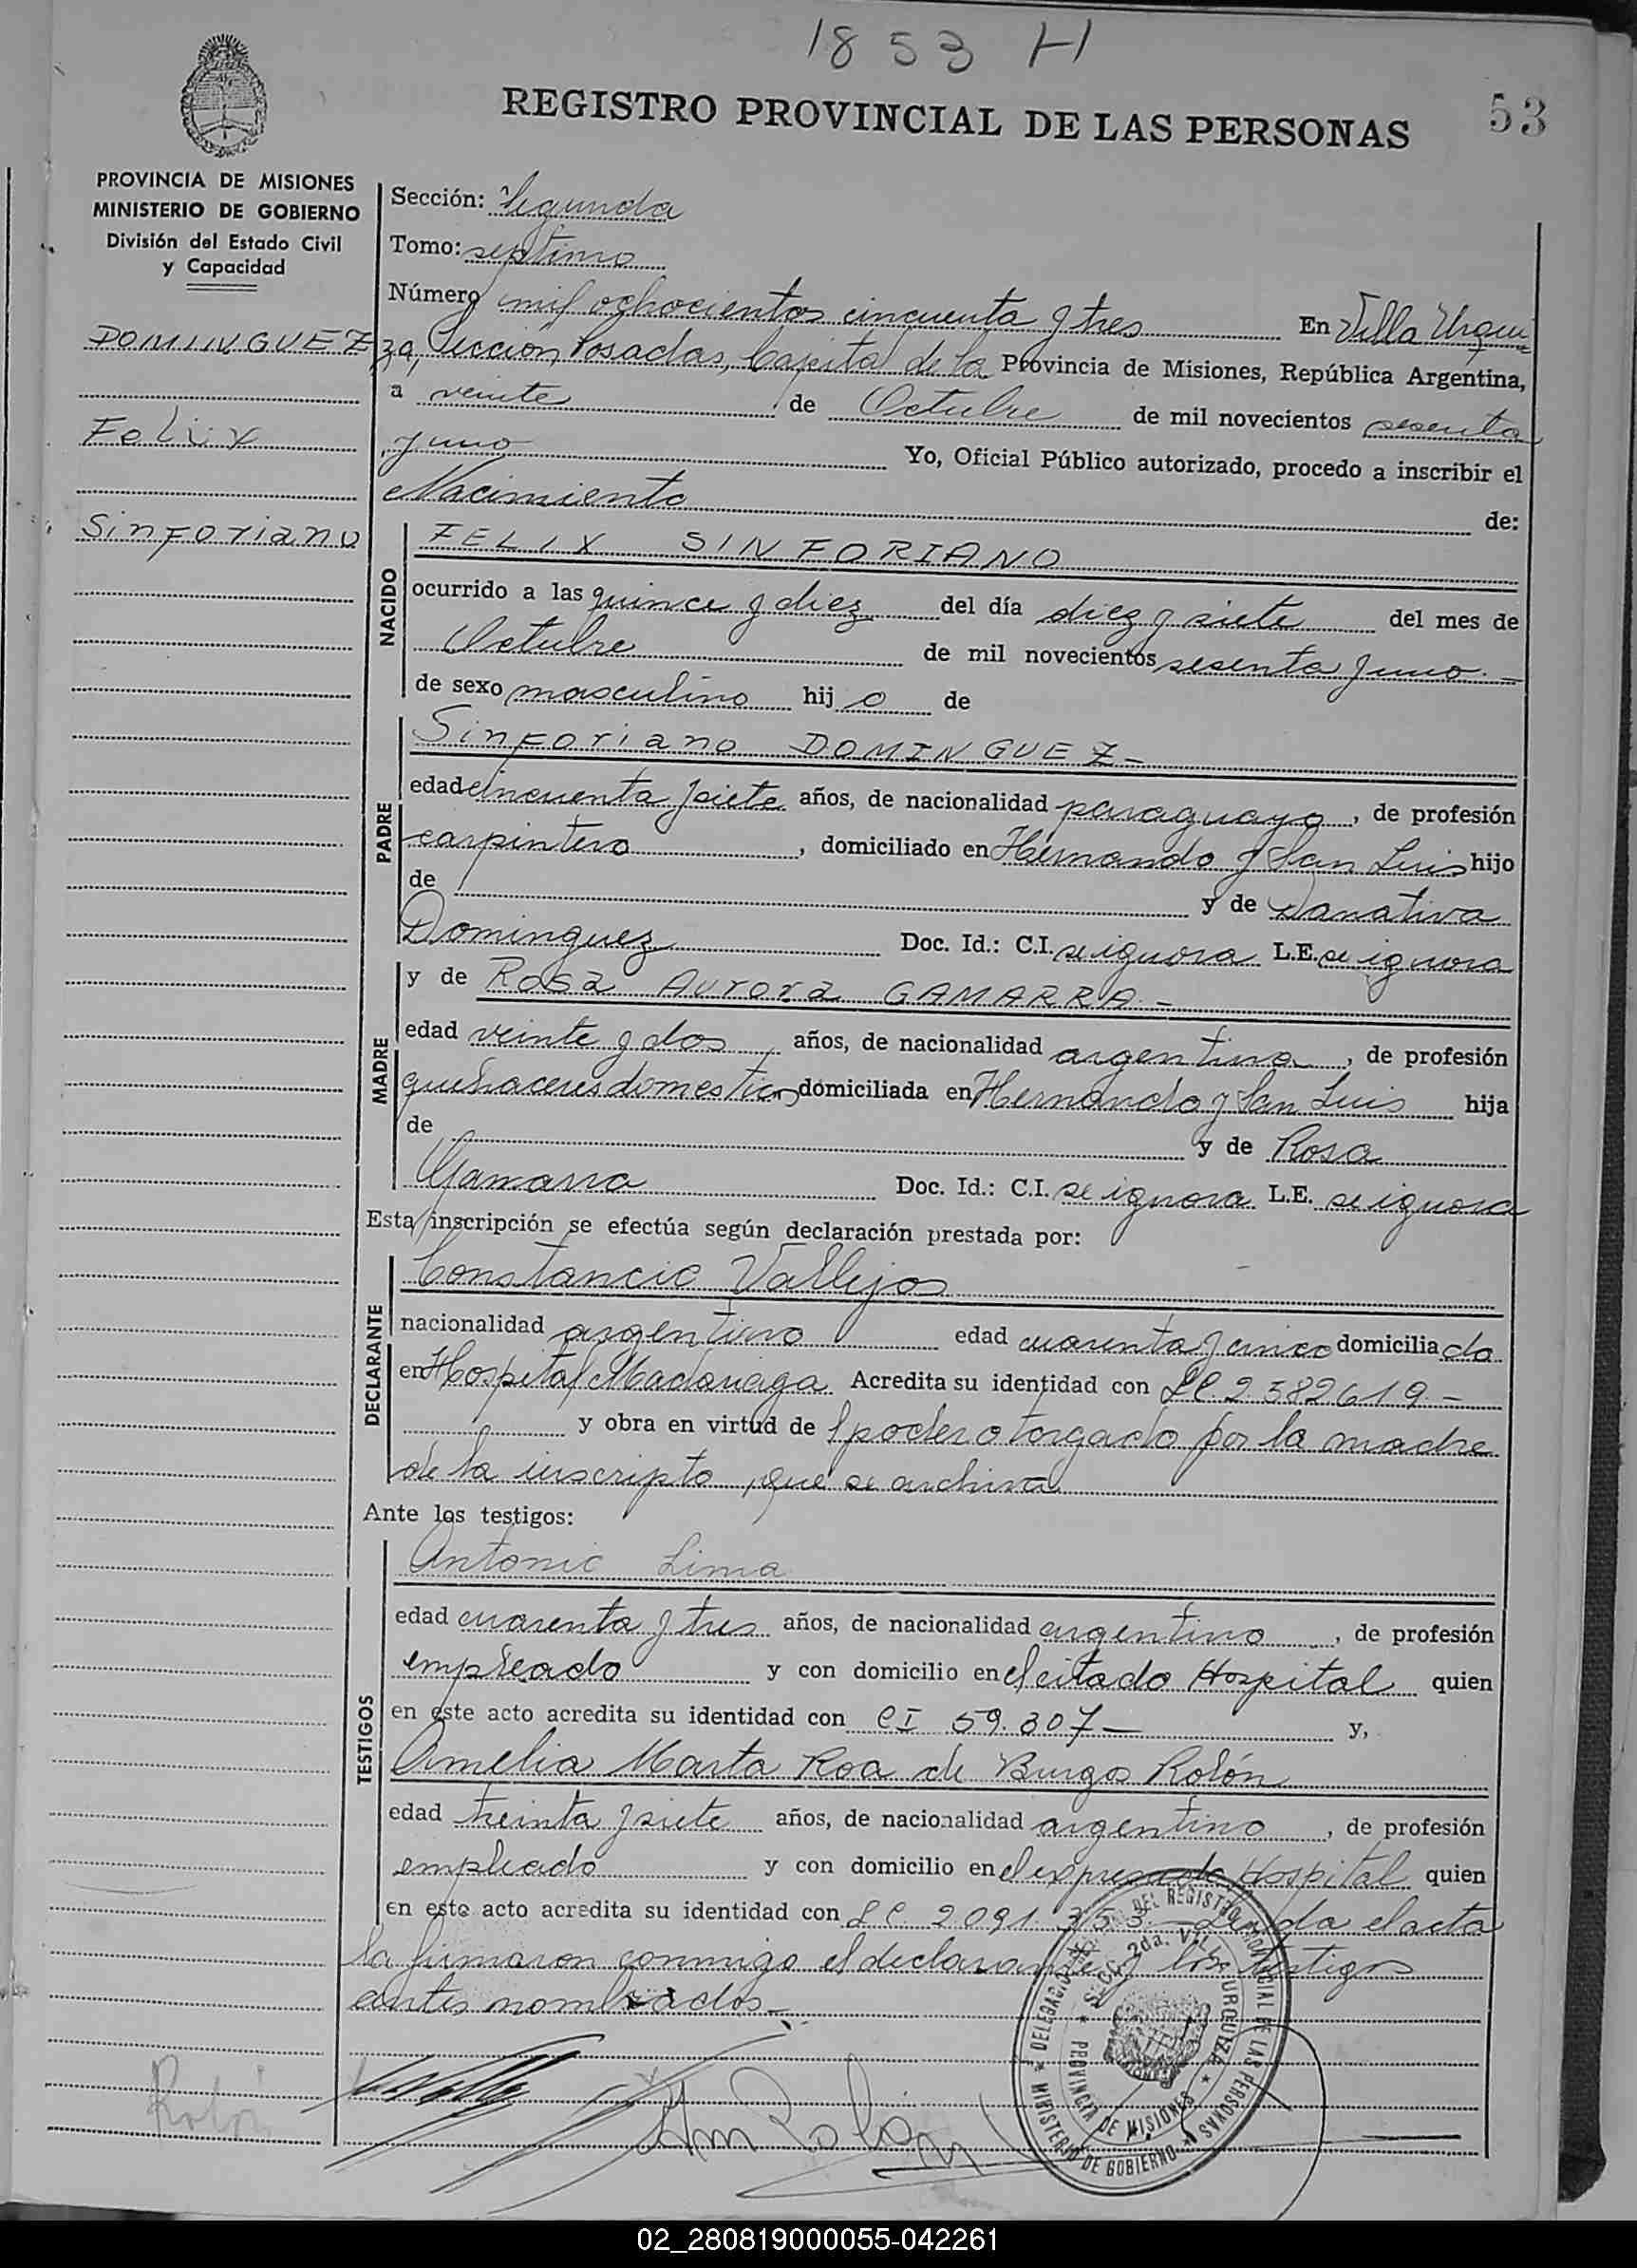 1853 H
53
REGISTRO PROVINCIAL DE LAS PERSONAS
PROVINCIA DE MISIONES
MINISTERIO DE GOBIERNO
División del Estado Civil
y Capacidad
DOMINGUEZ
Felix
Sinforiano
Sección: Segunda
Tomo: septimo
Número mil ochocientos cincuenta y tres En Villa Urqui
za, Seccion Posadas, Capital de la Provincia de Misiones, República Argentina,
a veinte de Octubre de mil novecientos sesenta
y uno Yo, Oficial Público autorizado, procedo a inscribir el
Nacimiento de:
NACIDO
FELIX SINFORIANO
ocurrido a las quince y diez del día diez y siete del mes de
Octubre de mil novecientos sesenta y uno.-
de sexo masculino hijo de
PADRE
Sinforiano DOMINGUEZ-
edad cincuenta y siete años, de nacionalidad paraguayo, de profesión
carpintero, domiciliado en Hernando y San Luis hijo
de y de Danativa
Dominguez Doc. Id.: C.I. se ignora L.E. se ignora
MADRE
y de Rosa Aurora GAMARRA.-
edad veinte y dos, años, de nacionalidad argentina, de profesión
quehaceres domesticos domiciliada en Hernando y San Luis hija
de y de Rosa
Gamarra Doc. Id.: C.I. se ignora L.E. se ignora
Esta inscripción se efectúa según declaración prestada por:
DECLARANTE
Constancio Vallejos
nacionalidad argentino edad cuarenta y cinco domiciliado
en Hospital Madariaga Acredita su identidad con LE. 2.382.619.-
y obra en virtud del poder otorgado por la madre
de la inscripto, que se archiva
Ante los testigos:
TESTIGOS
Antonio Lima
edad cuarenta y tres años, de nacionalidad argentino, de profesión
empleado y con domicilio en el citado Hospital quien
en este acto acredita su identidad con CI 59.307- y,
Amelia Marta Roa de Burgos Rolón
edad treinta y siete años, de nacionalidad argentino, de profesión
empleado y con domicilio en el expresado Hospital quien
en este acto acredita su identidad con LC 2.091.353.- Leida el acta
la firmaron conmigo el declarante y los testigos
antes nombrados.-
DELEGACION DEL REGISTRO PROVINCIAL DE LAS PERSONAS * MINISTERIO DE GOBIERNO *
SECC. 2da. VILLA URQUIZA * PROVINCIA DE MISIONES *
Rolón
02_280819000055-042261